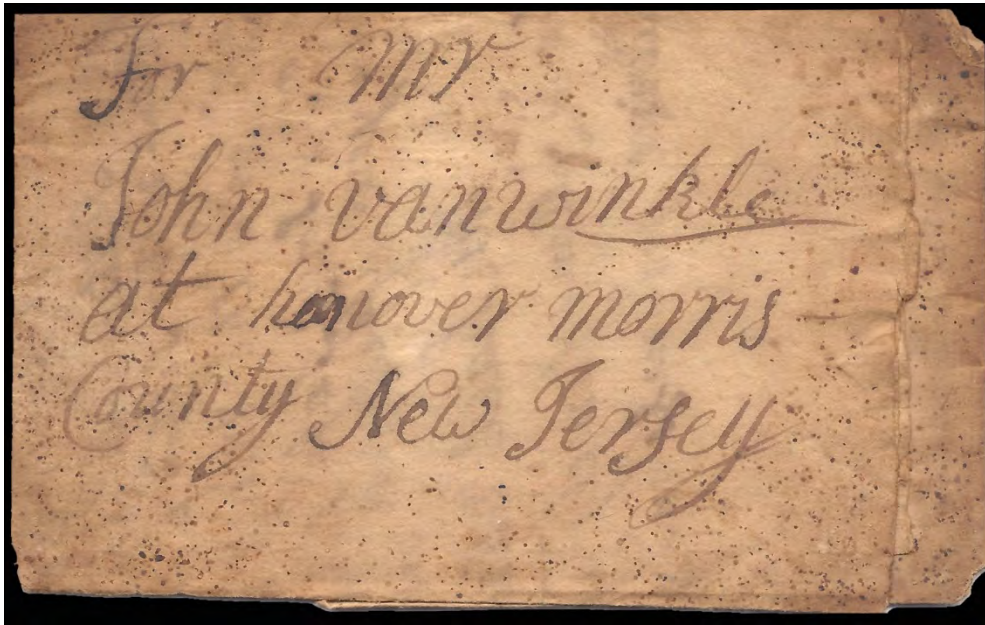 For Mr
John vanwinkle
at hanover morris
County New Jersey